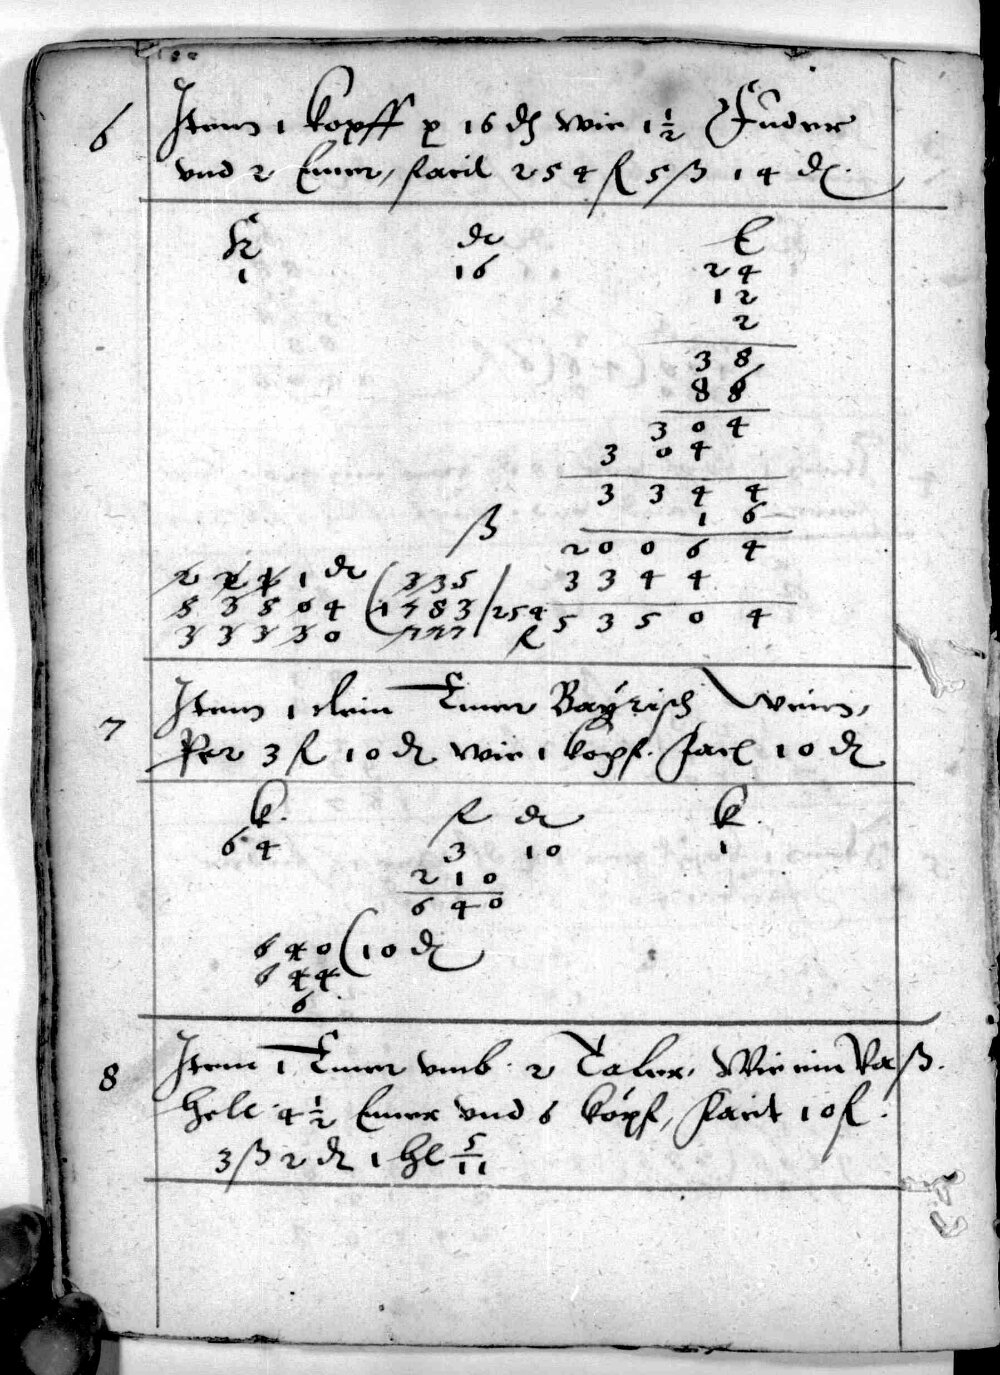 6 Item 1 Kopff p 16 ₰ wie 1 1/2 Fuder
vnd 2 Emer, facit 254 fl 5 ß 14 ₰.
K ₰ E
1 16 24
12
2
38
88
304
304
3344
16
20064
3344
53504
ß
2 2 4 1 ₰ ( 335
8 3 8 0 4 ( 1783 / 254
3 3 3 3 0 777 fl
7 Item 1 clein Emer Bayrisch Wein,
Per 3 fl 10 ₰ wie 1 köpf. Faci 10 ₰
k. fl ₰ k.
64 3 10 1
210
640
640 ( 10 ₰
644
6
8 Item 1 Emer vmb 2 Taler, Wie ein Vaß.
helt 4 1/2 Emer vnd 6 köpf, facit 10 fl.
3 ß 2 ₰ 1 hl 5/11